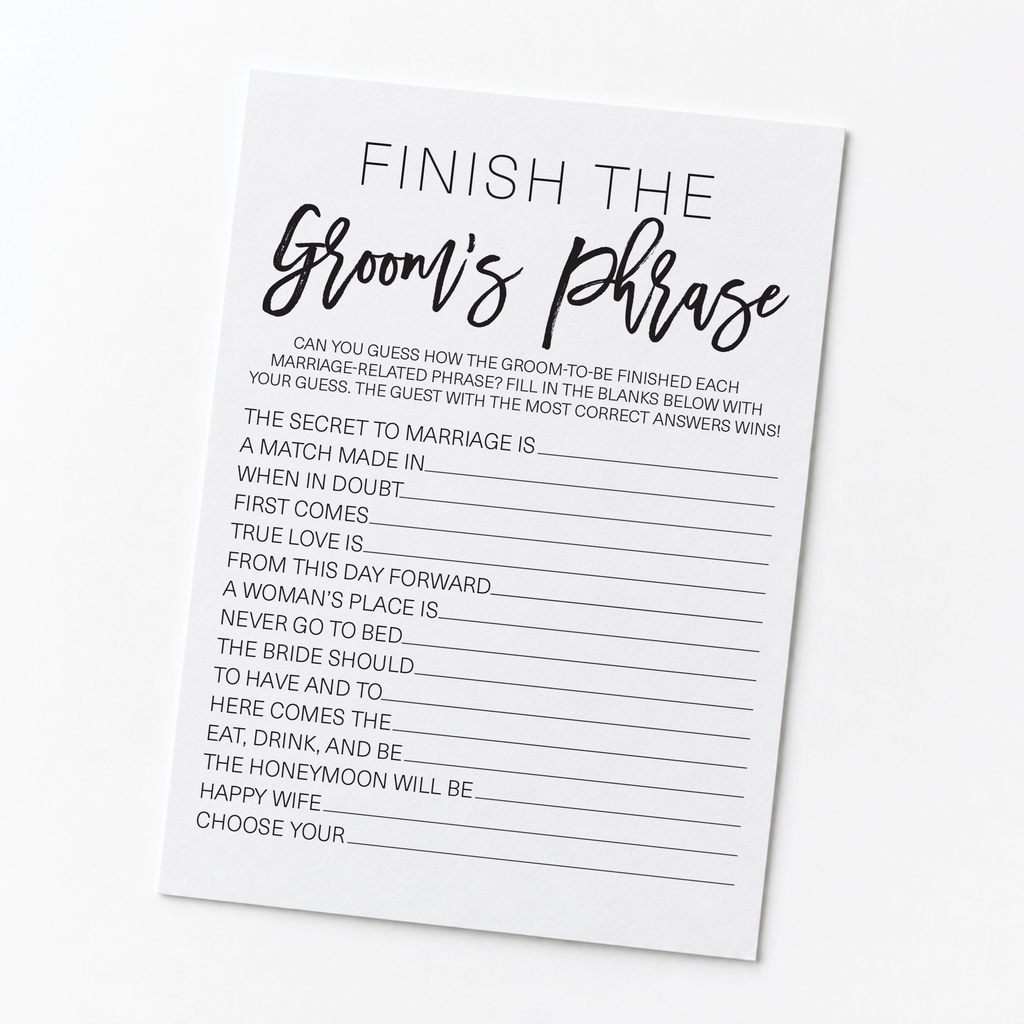 FINISH THE
Groom's Phrase
CAN YOU GUESS HOW THE GROOM-TO-BE FINISHED EACH
MARRIAGE-RELATED PHRASE? FILL IN THE BLANKS BELOW WITH
YOUR GUESS. THE GUEST WITH THE MOST CORRECT ANSWERS WINS!
THE SECRET TO MARRIAGE IS
A MATCH MADE IN
WHEN IN DOUBT
FIRST COMES
TRUE LOVE IS
FROM THIS DAY FORWARD
A WOMAN'S PLACE IS
NEVER GO TO BED
THE BRIDE SHOULD
TO HAVE AND TO
HERE COMES THE
EAT, DRINK, AND BE
THE HONEYMOON WILL BE
HAPPY WIFE
CHOOSE YOUR